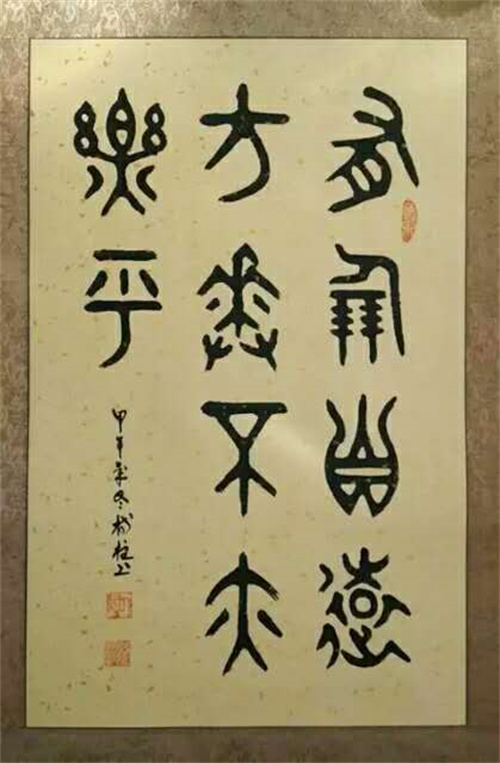 有朋自遠
方來不亦
樂乎
甲午年冬